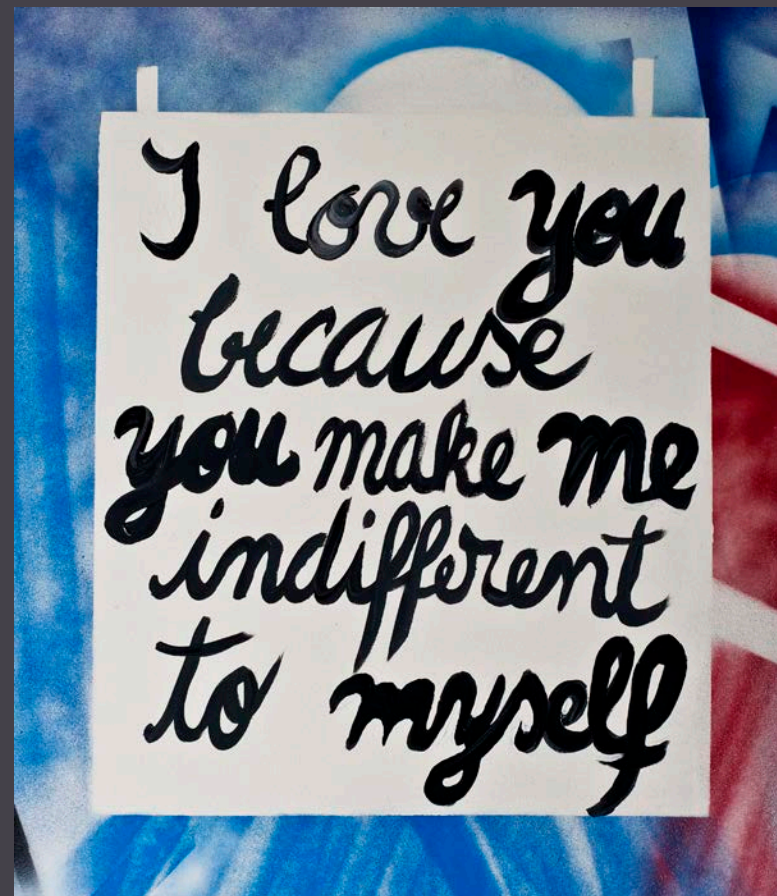 I love you
because
you make me
indifferent
to myself